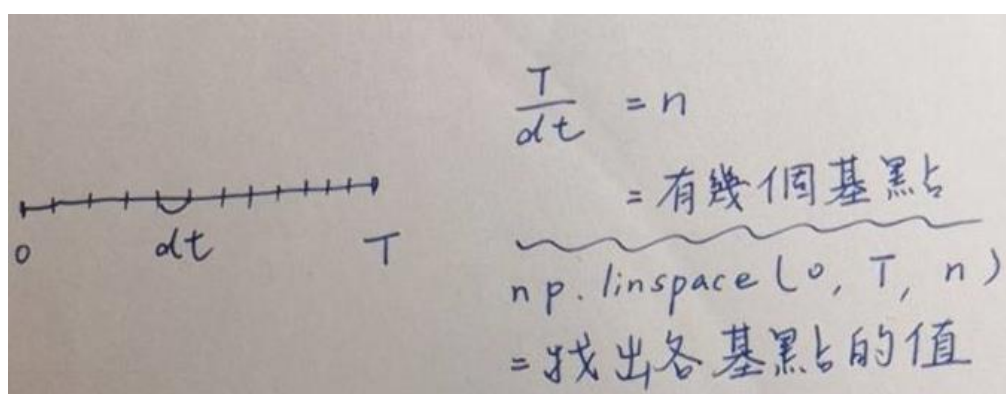 0 dt T
T/dt = n
= 有幾個基點
np.linspace(0, T, n)
= 找出各基點的值